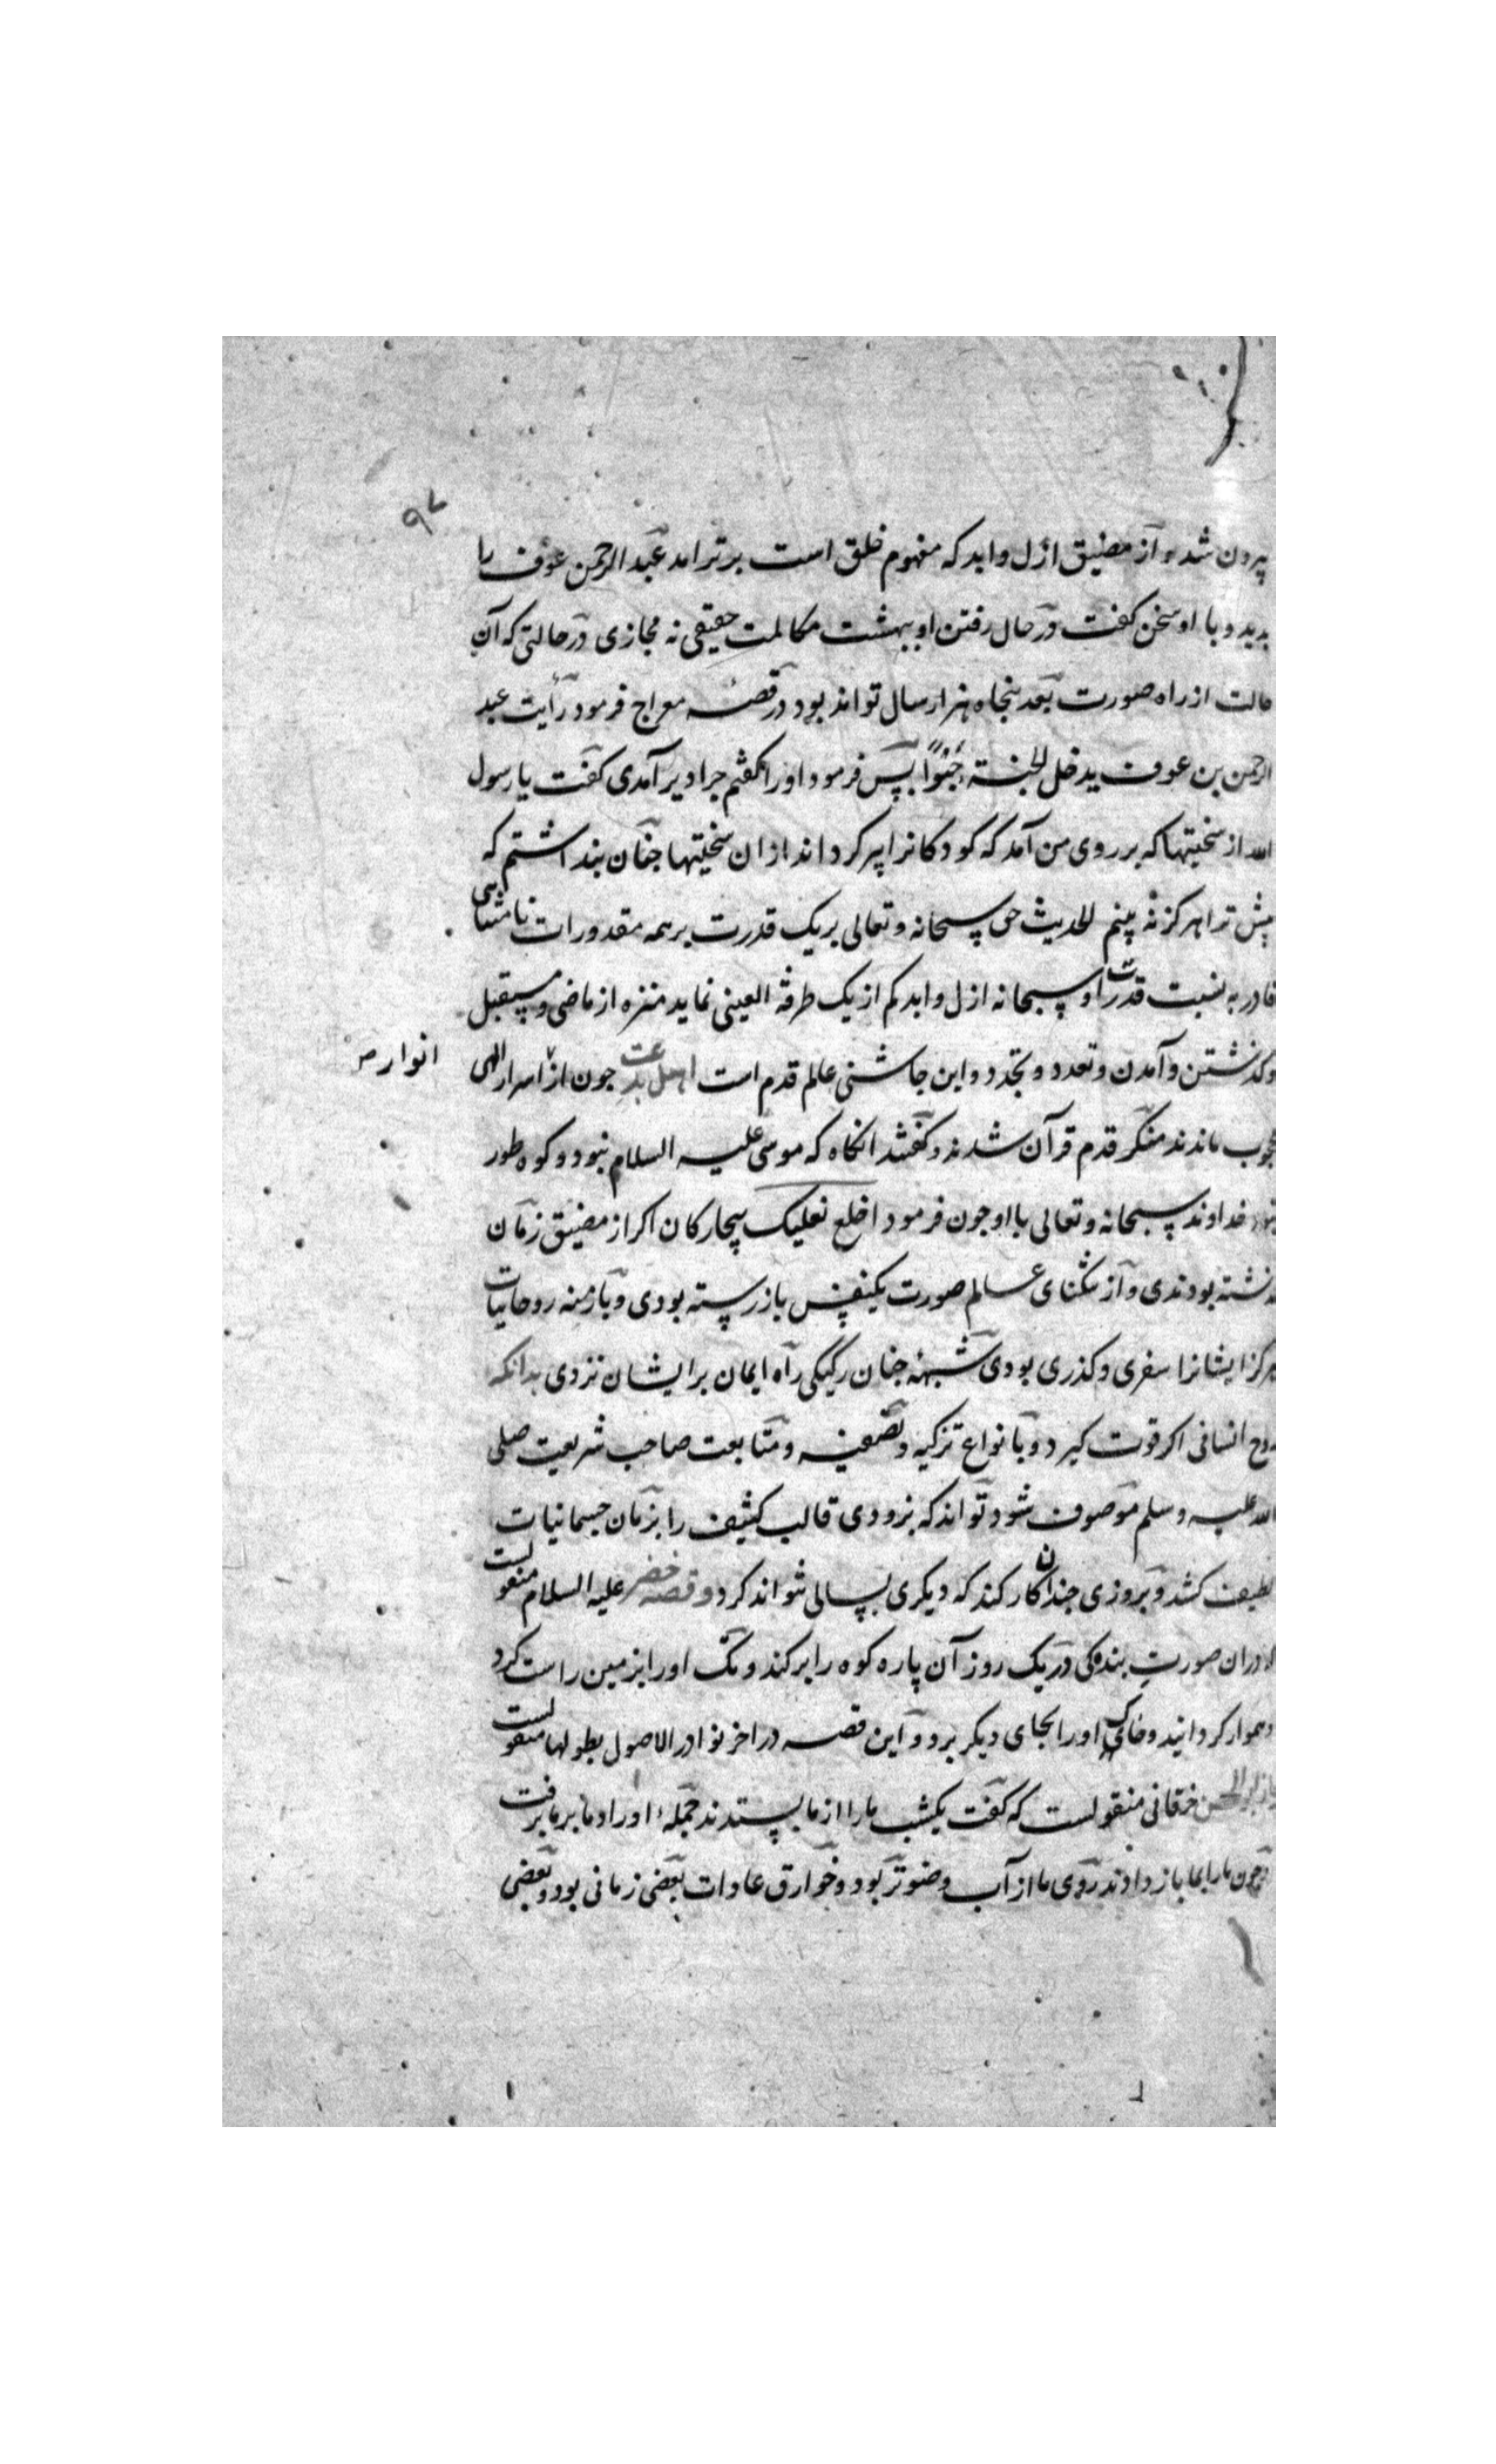 ۹۷
بیرون شد و از مضیق ازل و ابد که مفهوم خلق است برتر امد عبد الرحمن عوف را
بدید و با او سخن گفت در حال رفتن او ببهشت مکالمت حقیقی نه مجازی در حالتی که آن
حالت از راه صورت بعد پنجاه هزار سال تواند بود در قصه معراج فرمود رأیت عبد
الرحمن بن عوف یدخل الجنة حبوًا پس فرمود او را گفتم چرا دیر آمدی گفت یا رسول
الله از سختیها که بر روی من آمد که کودکانرا پیر گرداند از ان سختیها چنان پنداشتم که
بیش ترا هرگز نه بینم الحدیث حق سبحانه و تعالی بر یک قدرت بر همه مقدورات نامتناهی
قادر به نسبت قدرت او سبحانه ازل و ابد کم از یک طرفة العینی نماید منزه از ماضی و مستقبل
و گذشتن و آمدن و تعدد و تجدد و این چاشنی عالم قدم است اهل بدعت چون از اسرار الهی
انوار صح
محجوب ماندند منکر قدم قرآن شدند و گفتند انگاه که موسی علیه السلام نبود و کوه طور
نبود خداوند سبحانه و تعالی با او چون فرمود اخلع نعلیک بیچارگان اگر از مضیق زمان
گذشته بودندی و از تنگنای عالم صورت یکنفس باز رسته بودی و بازمنه روحانیات
هرگز ایشانرا سفری و گذری بودی شبهه چنان رکیکی راه ایمان بر ایشان نزدی بدانکه
روح انسانی اگر قوت گیرد و بانواع تزکیه و تصفیه و متابعت صاحب شریعت صلی
الله علیه و سلم موصوف شود تواند که بزودی قالب کثیف را بزمان جسمانیات
لطیف کشد و بروزی چندان کار کند که دیگری بسالی نتواند کرد و قصه خضر علیه السلام منقولست
در ان صورت بندگی در یک روز آن پاره کوه را بر کند و تک او را بزمین راست کرد
و هموار گردانید و خاک او را بجای دیگر برد و این قصه در اخر نوادر الاصول بطولها منقولست
الحسن خرقانی منقولست که گفت یکشب ما را از ما بستدند جمله اوراد ما بر ما برفت
چون ما را بما باز دادند روی ما از آب وضو تر بود و خوارق عادات بعضی زمانی بود و بعضی